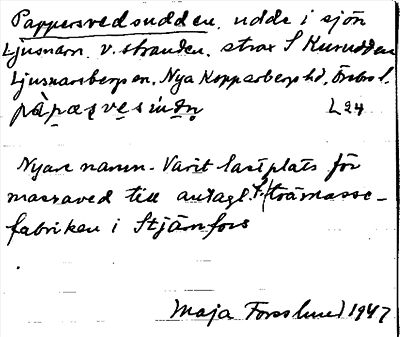 Pappersvedsudden, udde i sjön
Ljusnaren, v. stranden, strax S Kurudden
Ljusnarsbergs sn, Nya Kopparbergs hd, Örebro l.
L 24
Nyare namn. Varit lastplats för
massaved till trämasse-
fabriken i Stjärnfors
Maja Forsslund 1947